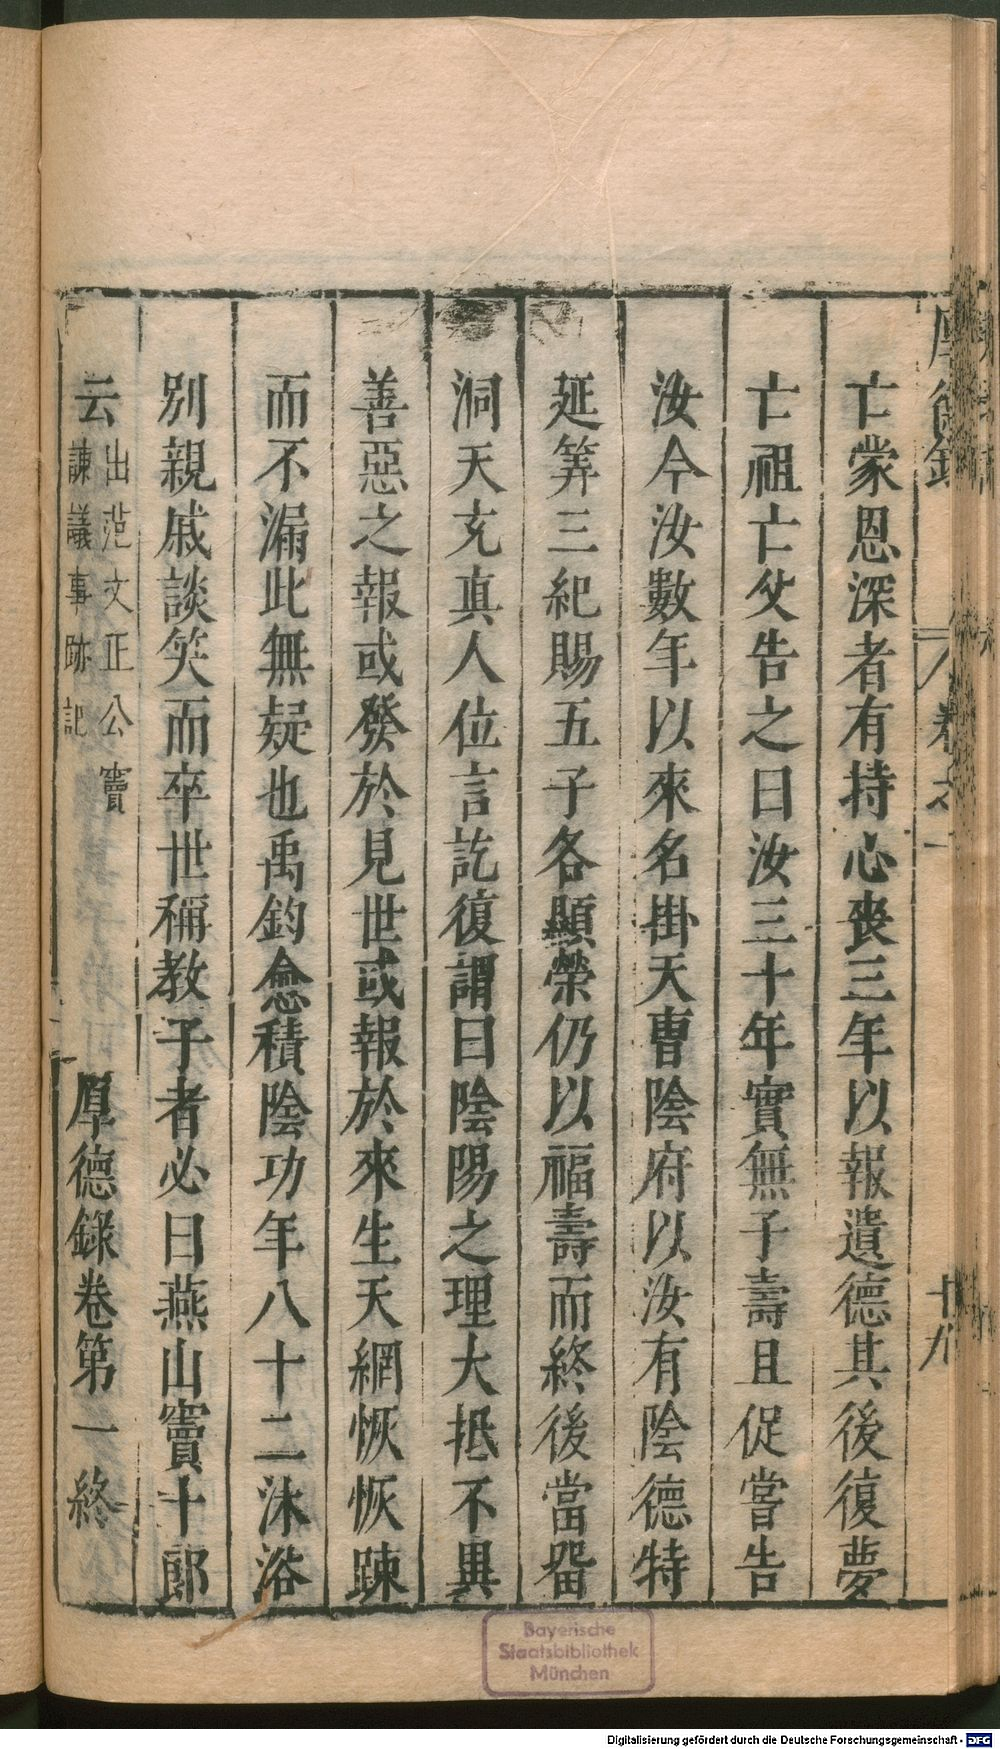 厚德錄 卷之一 十九
亡蒙恩深者有持心喪三年以報遺德其後復夢
亡祖亡父告之曰汝三十年實無子壽且促嘗告
汝今汝數年以來名掛天曹陰府以汝有陰德特
延筭三紀賜五子各顯榮仍以福壽而終後當畱
洞天充真人位言訖復謂曰陰陽之理大抵不異
善惡之報或發於見世或報於來生天網恢恢踈
而不漏此無疑也禹鈞愈積陰功年八十二沐浴
別親戚談笑而卒世稱教子者必曰燕山竇十郎
云出范文正公竇
諫議事跡記
厚德錄卷第一終
Bayerische
Staatsbibliothek
München
Digitalisierung gefördert durch die Deutsche Forschungsgemeinschaft - DFG